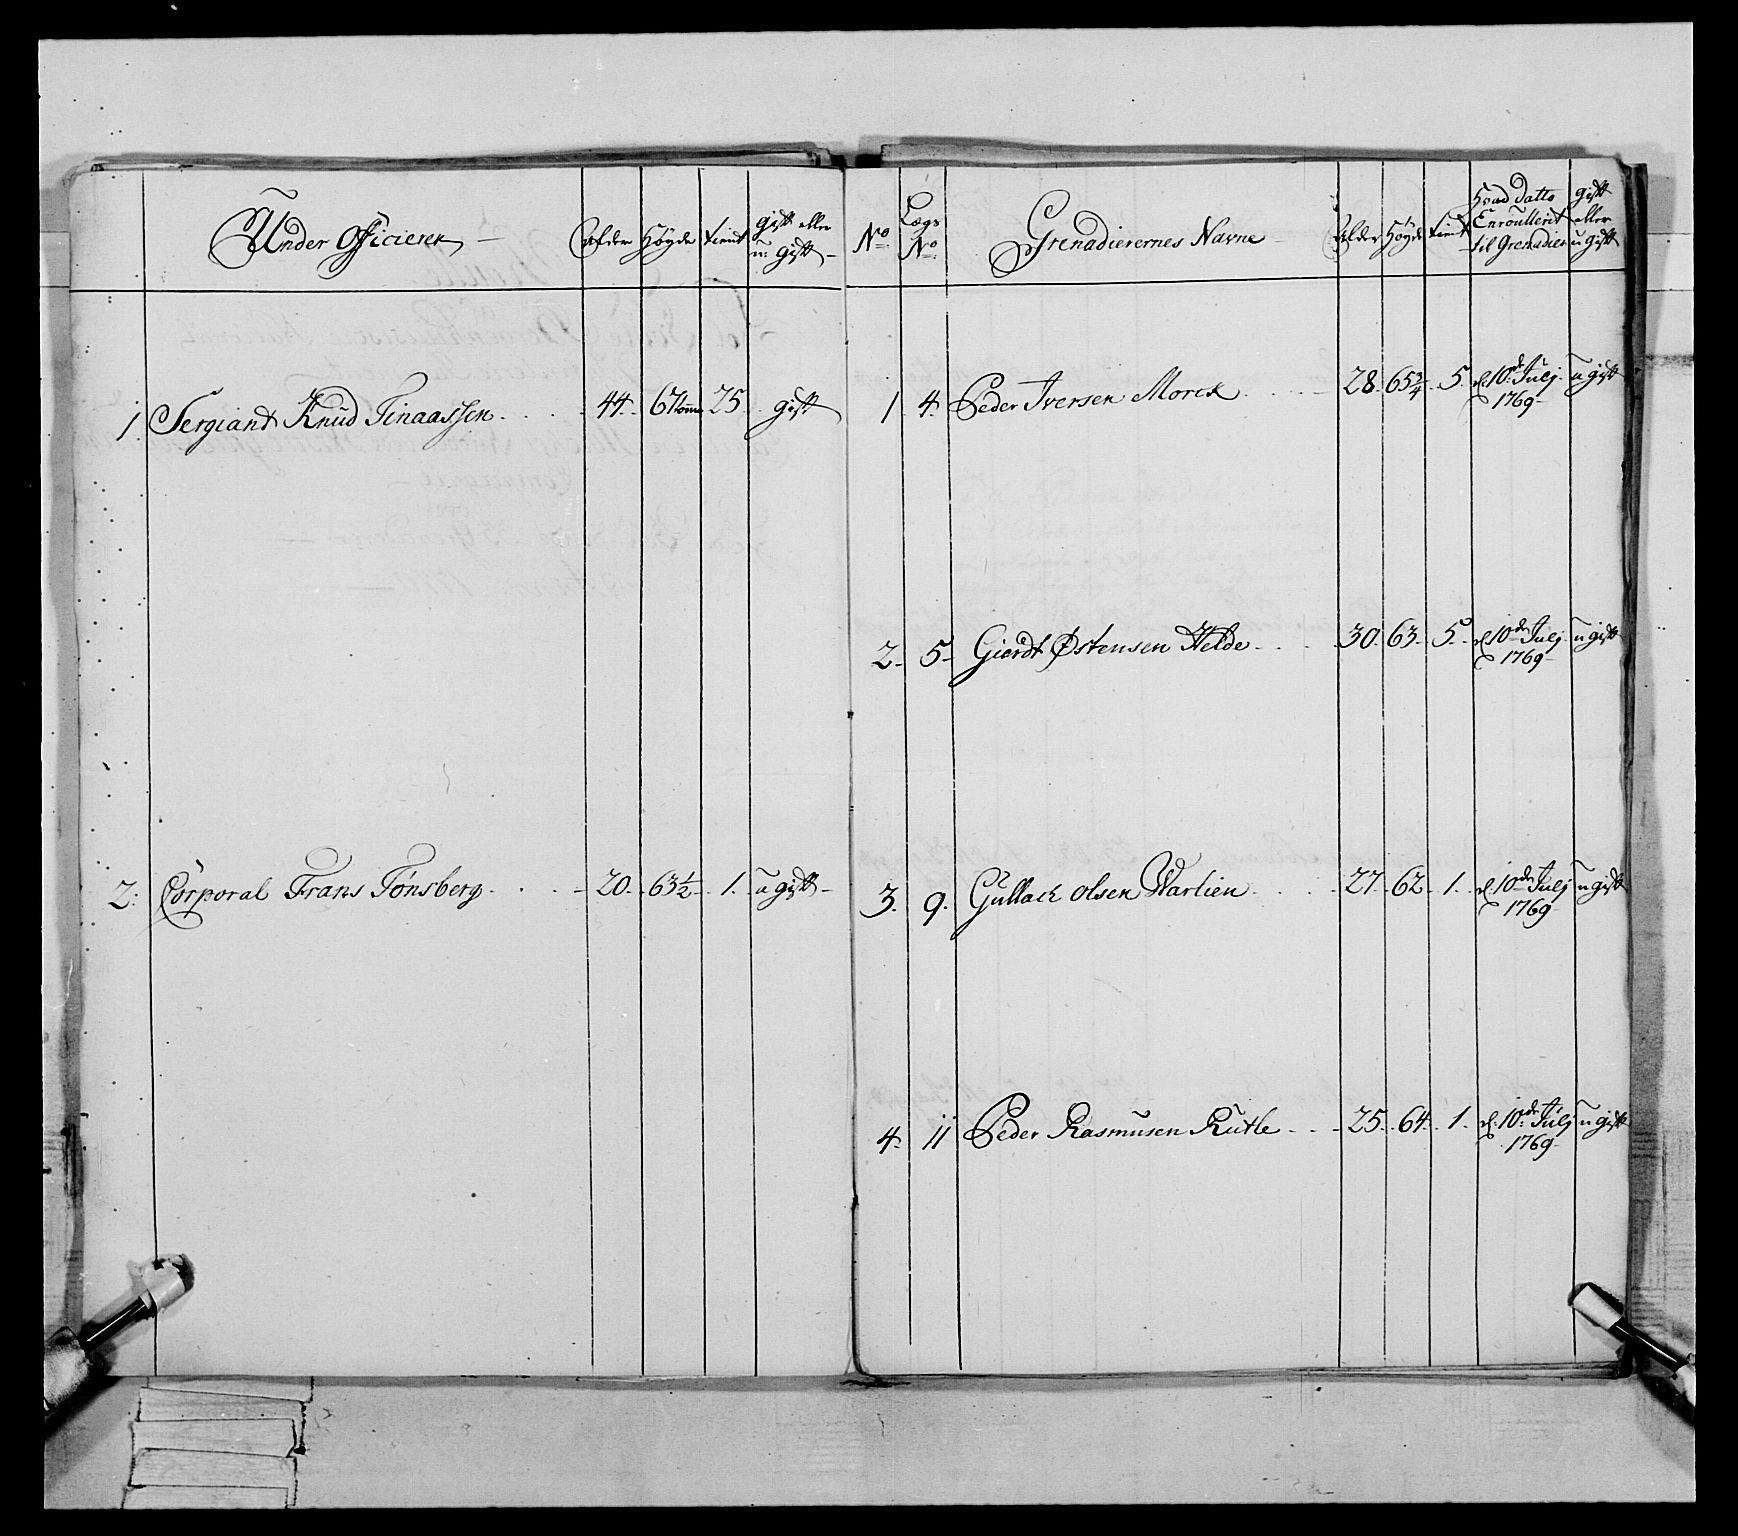 Under Officierer — Alder Höyde tient gift eller u: gift —
1 Sergiant Knud Finaassen 44. 67 tom̅ 25. gift
2. Corporal Frans Tønsberg 20. 63½ 1. u gift —
No Lægs No Grenadierernes Navne Alder Höyde tient Hvad Datto Enroullerit til Grenadier gift eller u gift
1 4. Peder Iversen Morck 28. 65¾ 5. d. 10de Julj 1769 u gift
2. 5. Gierdt Østensen Helde 30. 63. 5. d. 10de Julj 1769 u gift
3. 9. Gullack Olsen Warlien 27. 62. 1. d. 10de Julj 1769 u gift
4. 11 Peder Rasmusen Rutle 25. 64. 1. d. 10de Julj 1769 u gift